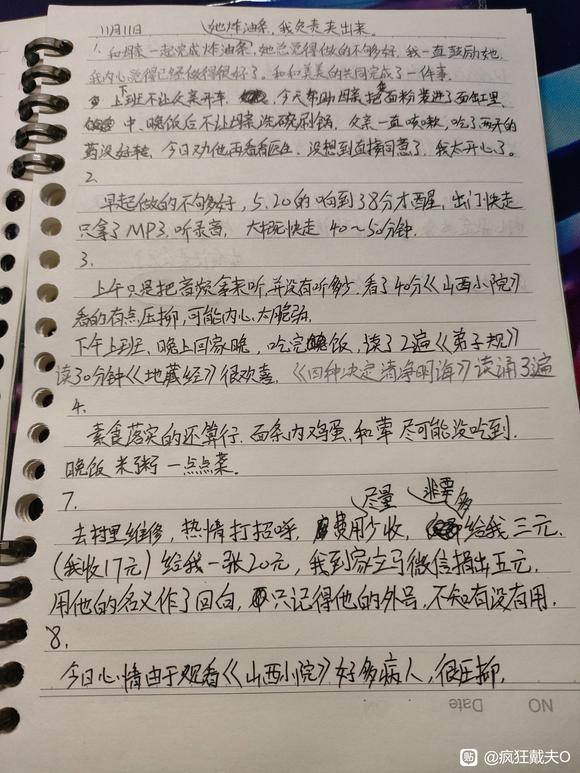 11月11日 她炸油条,我负责夹出来。
1. 和母亲一起完成炸油条,她总觉得做的不够好,我一直鼓励她,
我内心觉得已经做得很好了。和和美美的共同完成了一件事。
上下班不让父亲开车, 今天帮助母亲把面粉装进了面缸里,
中、晚饭后不让母亲洗碗刷锅, 父亲一直咳嗽,吃了两天的
药没好转, 今日劝他再看看医生,没想到直接同意了,我太开心了。
2.
早起做的不够好,5.20的响到38分才醒,出门快走
只拿了MP3,听录音, 大概快走40~50分钟.
3.
上午只是把音频拿来听,并没有听多少,看了40分《山西小院》
看的有点压抑,可能内心太脆弱.
下午上班, 晚上回家晚,吃完晚饭,读了2遍《弟子规》
读30分钟《地藏经》很欢喜,《四种决定清净明诲》读诵3遍
4.
素食落实的还算行.面条内鸡蛋,和荤尽可能没吃到.
晚饭 米粥 一点点菜。
7. 尽量 非要多
去村里维修,热情打招呼, 费用少收, 给我三元.
(我收17元)给我一张20元,我到家立马微信捐出五元.
用他的名义作了回向, 只记得他的外号,不知有没有用.
8.
今日心情由于观看《山西小院》好多病人,很压抑.
NO Date
贴 @疯狂戴夫O